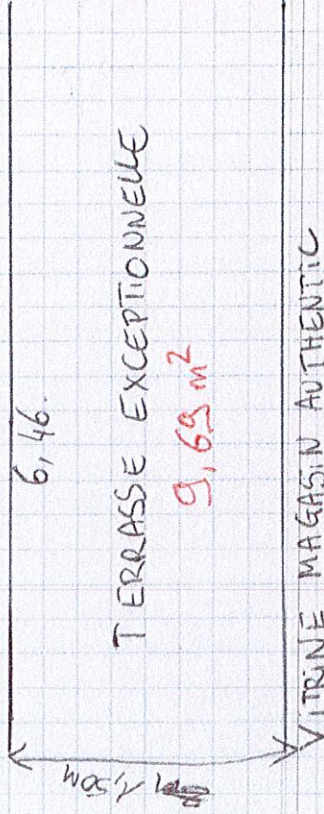 6,46.
TERRASSE EXCEPTIONNELLE
9,69 m²
1,50M
VITRINE MAGASIN AUTHENTIC